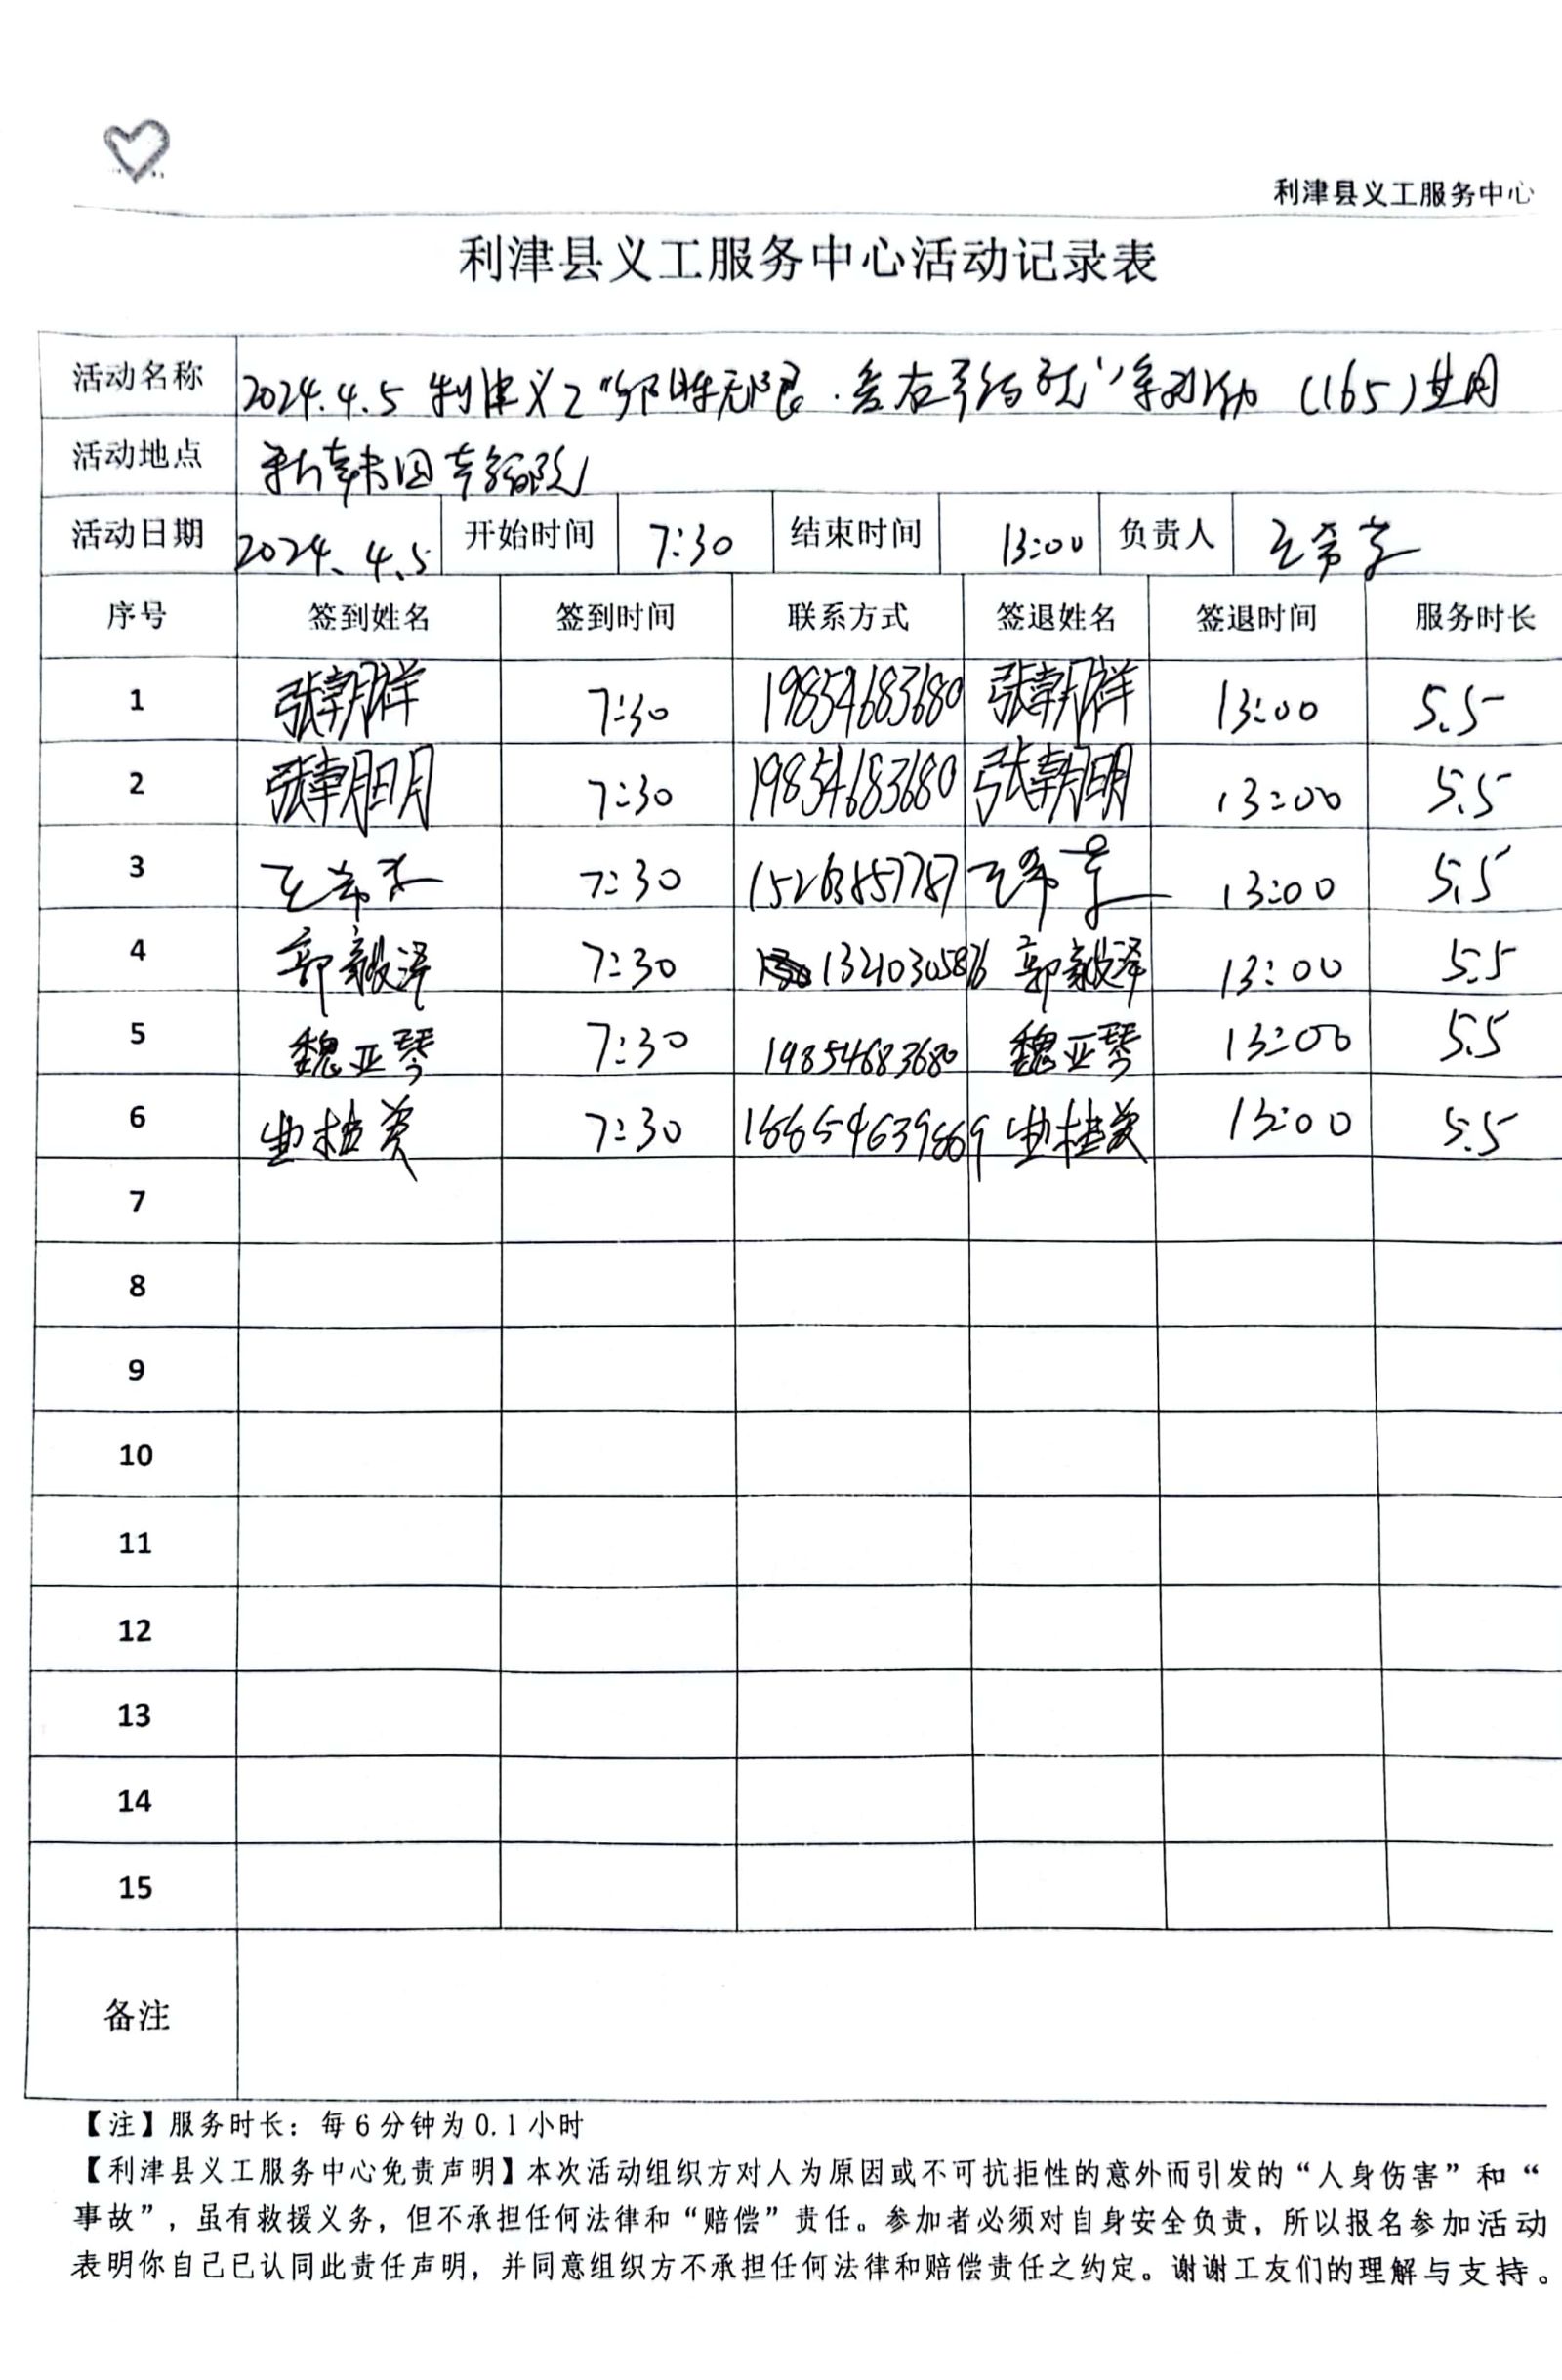 利津县义工服务中心
利津县义工服务中心活动记录表
活动名称 2024.4.5 利津义工 (165)
活动地点
活动日期 2024.4.5 开始时间 7:30 结束时间 13:00 负责人 王希
序号 签到姓名 签到时间 联系方式 签退姓名 签退时间 服务时长
1 张朝祥 7:30 19854683680 张朝祥 13:00 5.5
2 张朝明 7:30 19854683680 张朝明 13:00 5.5
3 王希 7:30 15263857787 王希 13:00 5.5
4 郭毅泽 7:30 13210305876 郭毅泽 13:00 5.5
5 魏亚琴 7:30 19854683680 魏亚琴 13:00 5.5
6 7:30 13:00 5.5
7
8
9
10
11
12
13
14
15
备注
【注】服务时长：每6分钟为0.1小时
【利津县义工服务中心免责声明】本次活动组织方对人为原因或不可抗拒性的意外而引发的“人身伤害”和“
事故”，虽有救援义务，但不承担任何法律和“赔偿”责任。参加者必须对自身安全负责，所以报名参加活动
表明你自己已认同此责任声明，并同意组织方不承担任何法律和赔偿责任之约定。谢谢工友们的理解与支持。